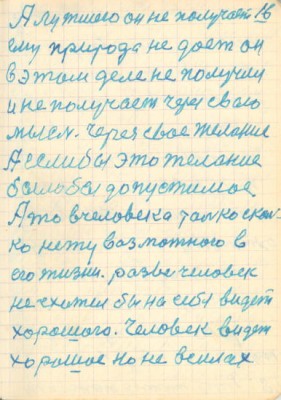 А лутшого он не получает 16
ему природа не дает он
в этом деле не получил
и не получает через свою
мысл. Через свое желание
А если бы это желание
было бы допустимое.
А то в человека только сколь-
ко нету возможного в
его жизни. разве человек
не схотел бы на себя видеть
хорошого. Человек видет
хорошое но не всилах